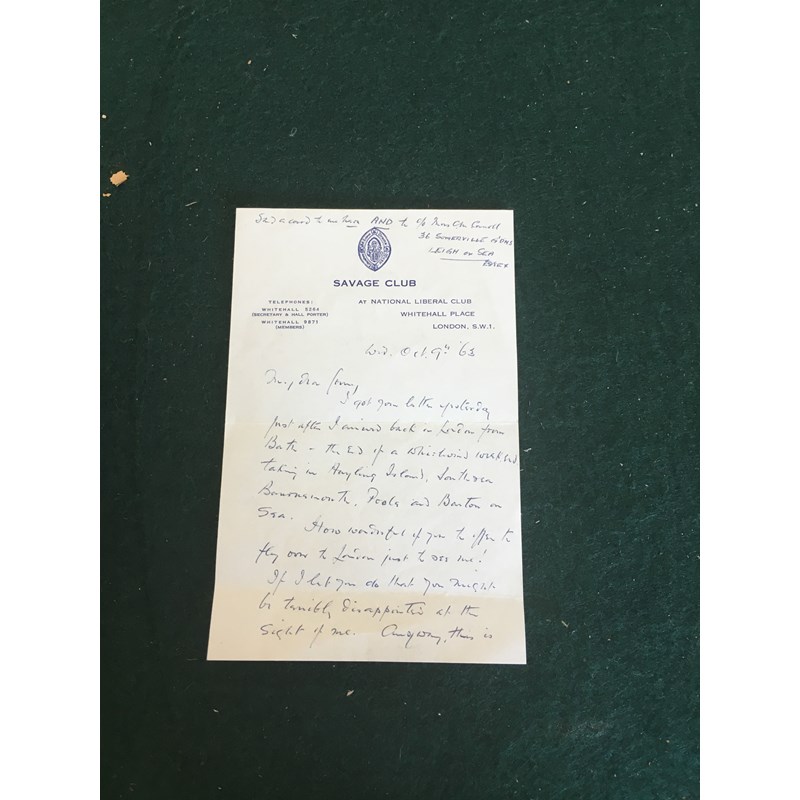 Send a card to me here AND to c/o
36 SOMERVILLE GDNS
LEIGH on SEA
ESSEX
SAVAGE CLUB
TELEPHONES:
WHITEHALL 5264
(SECRETARY & HALL PORTER)
WHITEHALL 9871
(MEMBERS)
AT NATIONAL LIBERAL CLUB
WHITEHALL PLACE
LONDON, S.W.1.
Wed. Oct. 9th '63
My dear
I got your letter yesterday
just after I arrived back in London from
Bath - the End of a Whirlwind weekend
taking in Hayling Island, Southsea
Bournemouth, Poole and Barton on
Sea.
How wonderful of you to offer to
fly over to London just to see me!
If I let you do that you might
be terribly disappointed at the
Sight of me. Anyway, this is